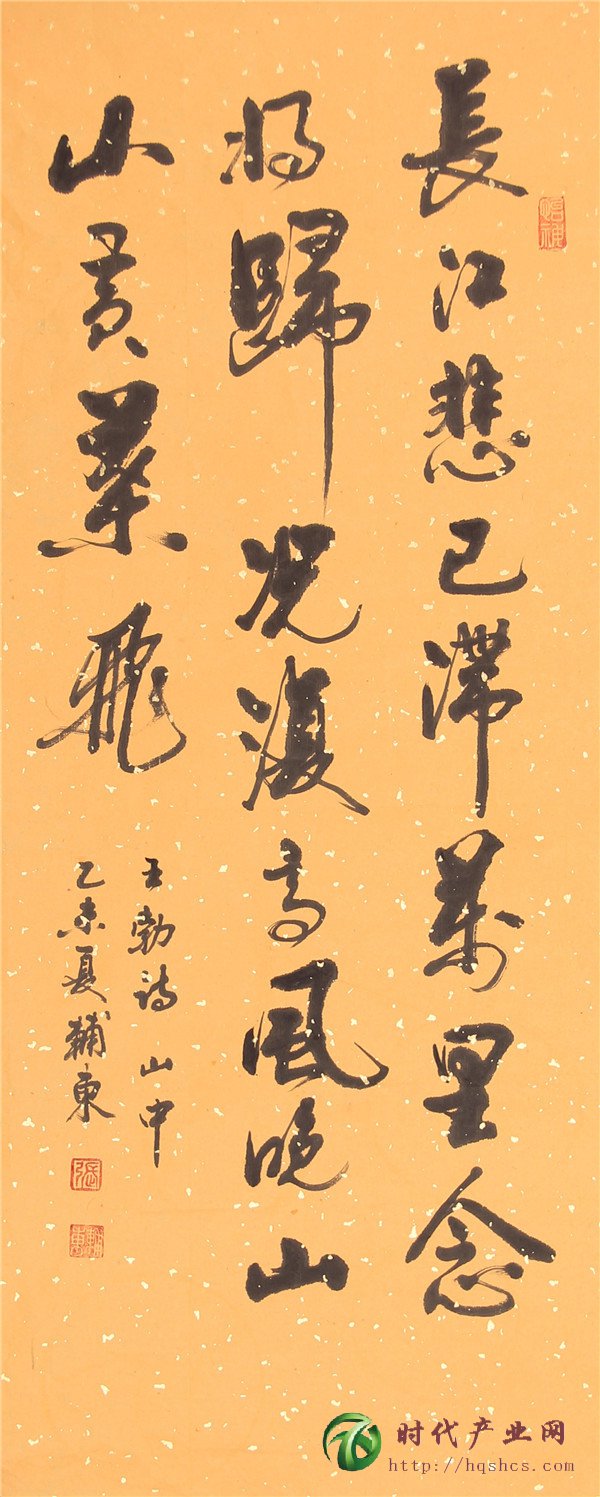 長江悲已滯萬里念
將歸况復高風晚山
山黃葉飛
王勃詩 山中
乙未夏輔東
張
輔東
时代产业网
http://hqshcs.com